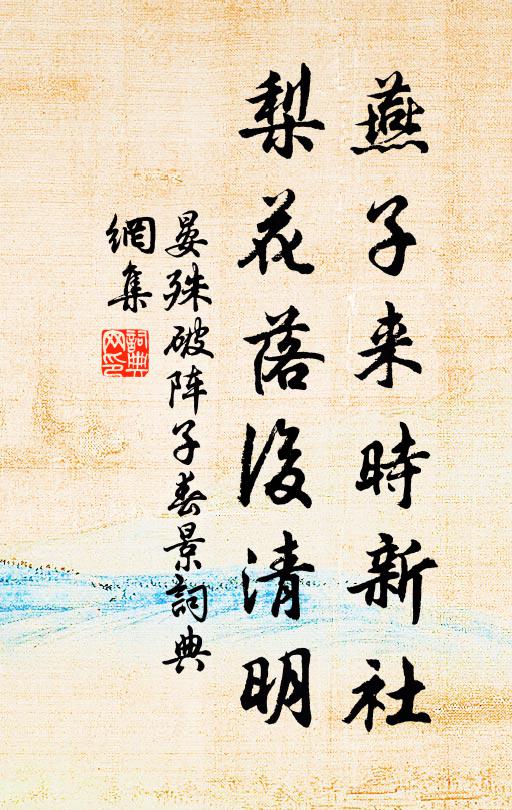 燕子来時新社
梨花落後清明
晏殊破阵子春景詞典
網集
詞典
网印